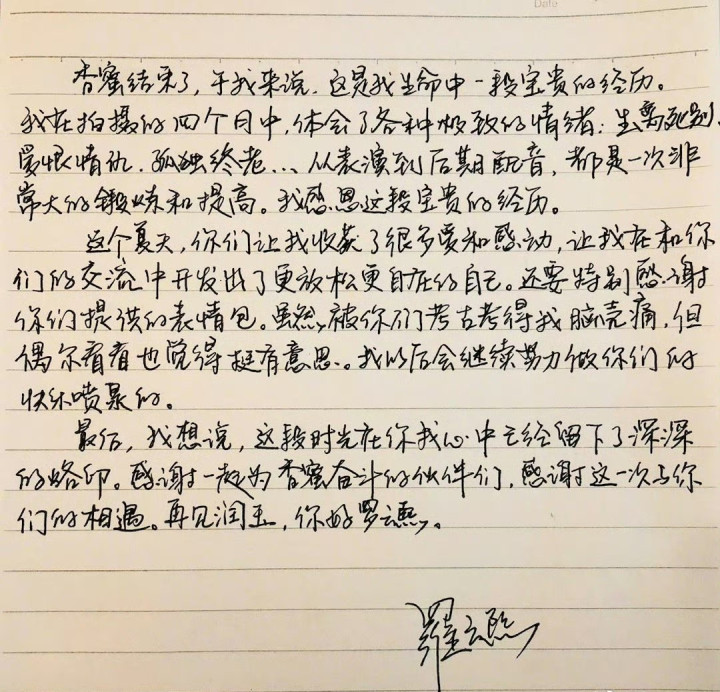 Date
香蜜结束了,于我来说,这是我生命中一段宝贵的经历。
我在拍摄的四个月中,体会了各种极致的情绪:生离死别、
爱恨情仇、孤独终老...从表演到后期配音,都是一次非
常大的锻炼和提高。我感恩这段宝贵的经历。
这个夏天,你们让我收获了很多爱和感动,让我在和你
们的交流中开发出了更放松更自在的自己。还要特别感谢
你们提供的表情包。虽然被你们考古考得我脑壳痛,但
偶尔看看也觉得挺有意思。我以后会继续努力做你们的
快乐喷泉的。
最后,我想说,这段时光在你我心中已经留下了深深
的烙印。感谢一起为香蜜奋斗的伙伴们,感谢这一次与你
们的相遇。再见润玉,你好罗云熙。
羅云熙